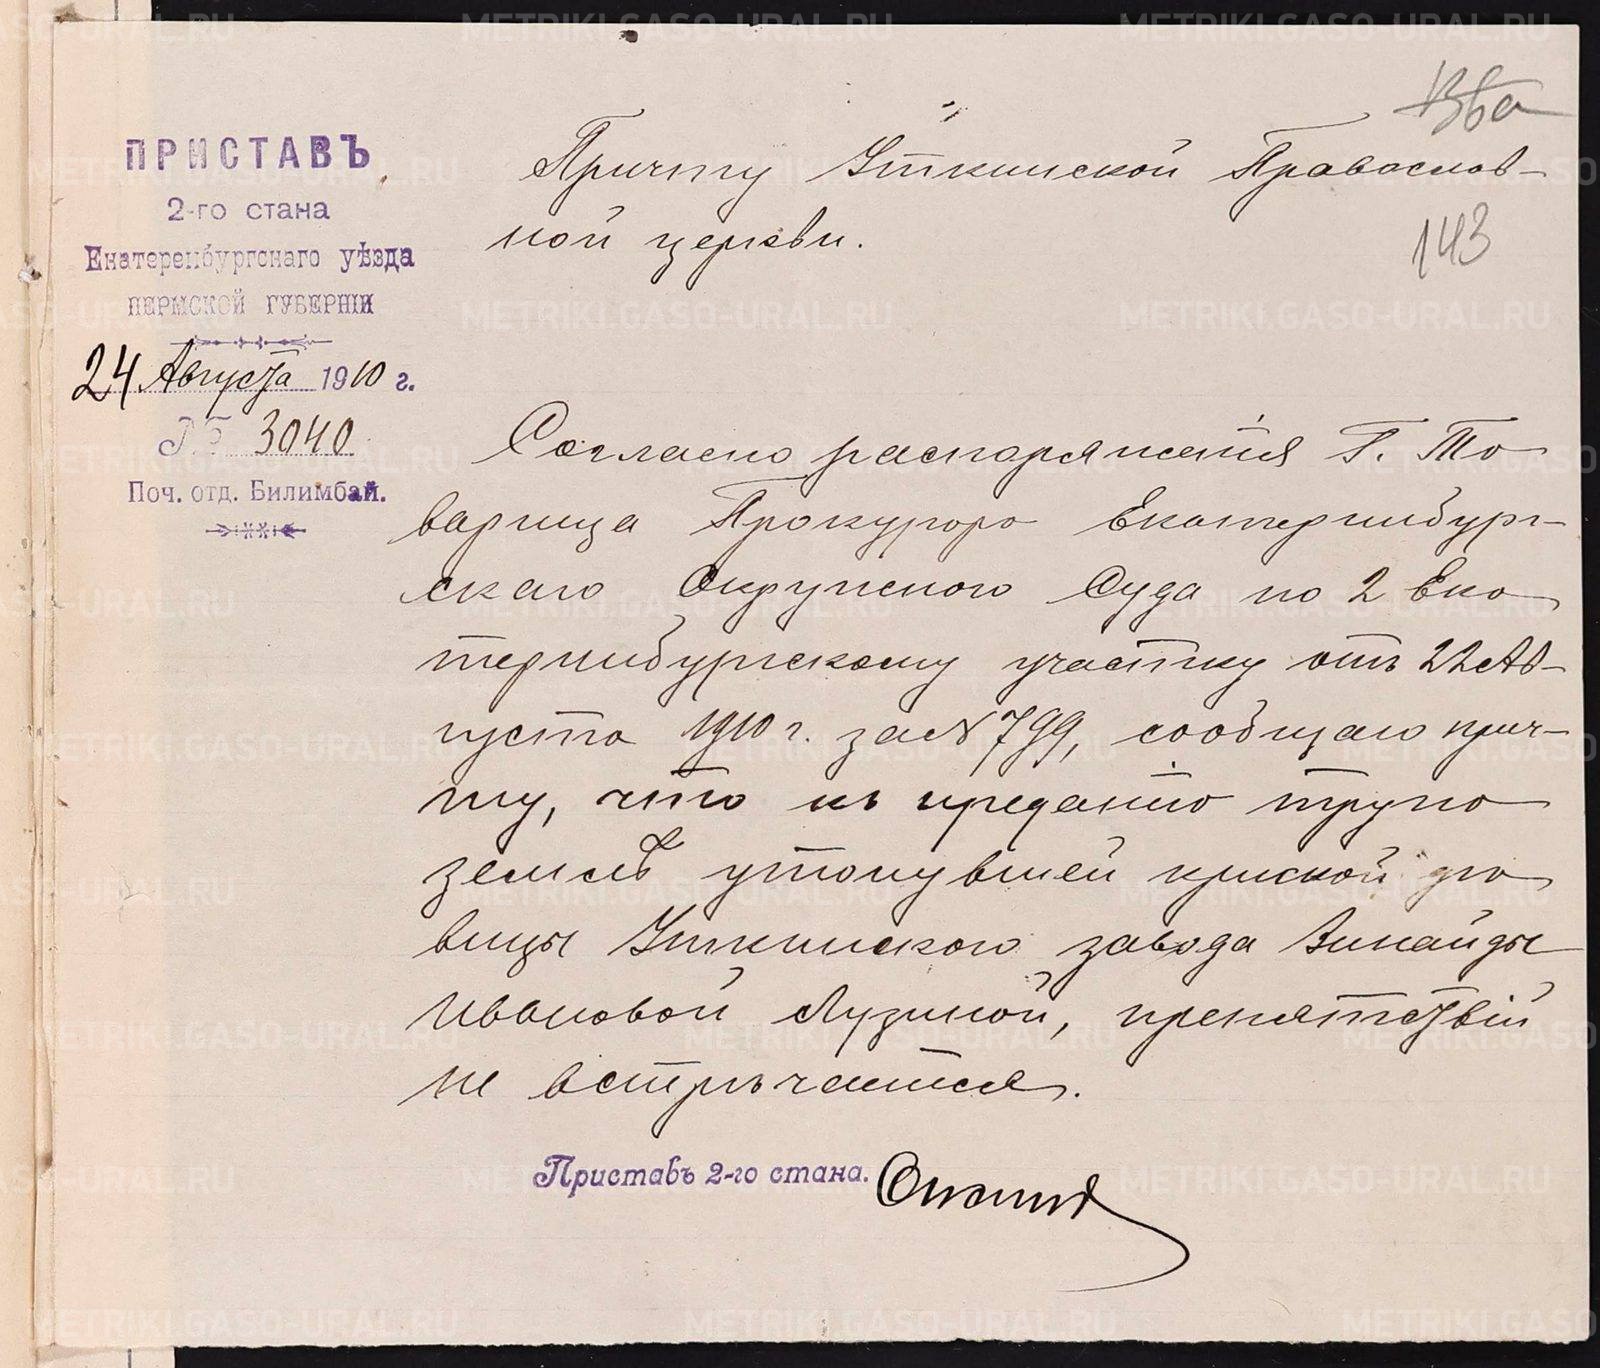 ПРИСТАВЪ
2-го стана
Екатеренбургскаго уѣзда
ПЕРМСКОЙ ГУБЕРНІИ
24 Августа 1910 г.
№ 3040
Поч. отд. Билимбай.
143
Причту Уткинской Православ-
ной церкви.
Согласно распоряженія Г. То
варища Прокурора Екатеринбург-
скаго Окружного Суда по 2 Ека
теринбургскому участку отъ 22 Ав-
густа 1910 г. за N 799, сообщаю прич-
ту, что къ преданію трупа
землѣ утонувшей крской дѣ
вицы Уткинскаго завода Зинаиды
Ивановой Лузиной, препятствій
не встрѣчается.
Приставъ 2-го стана.
METRIKI.GASO-URAL.RU